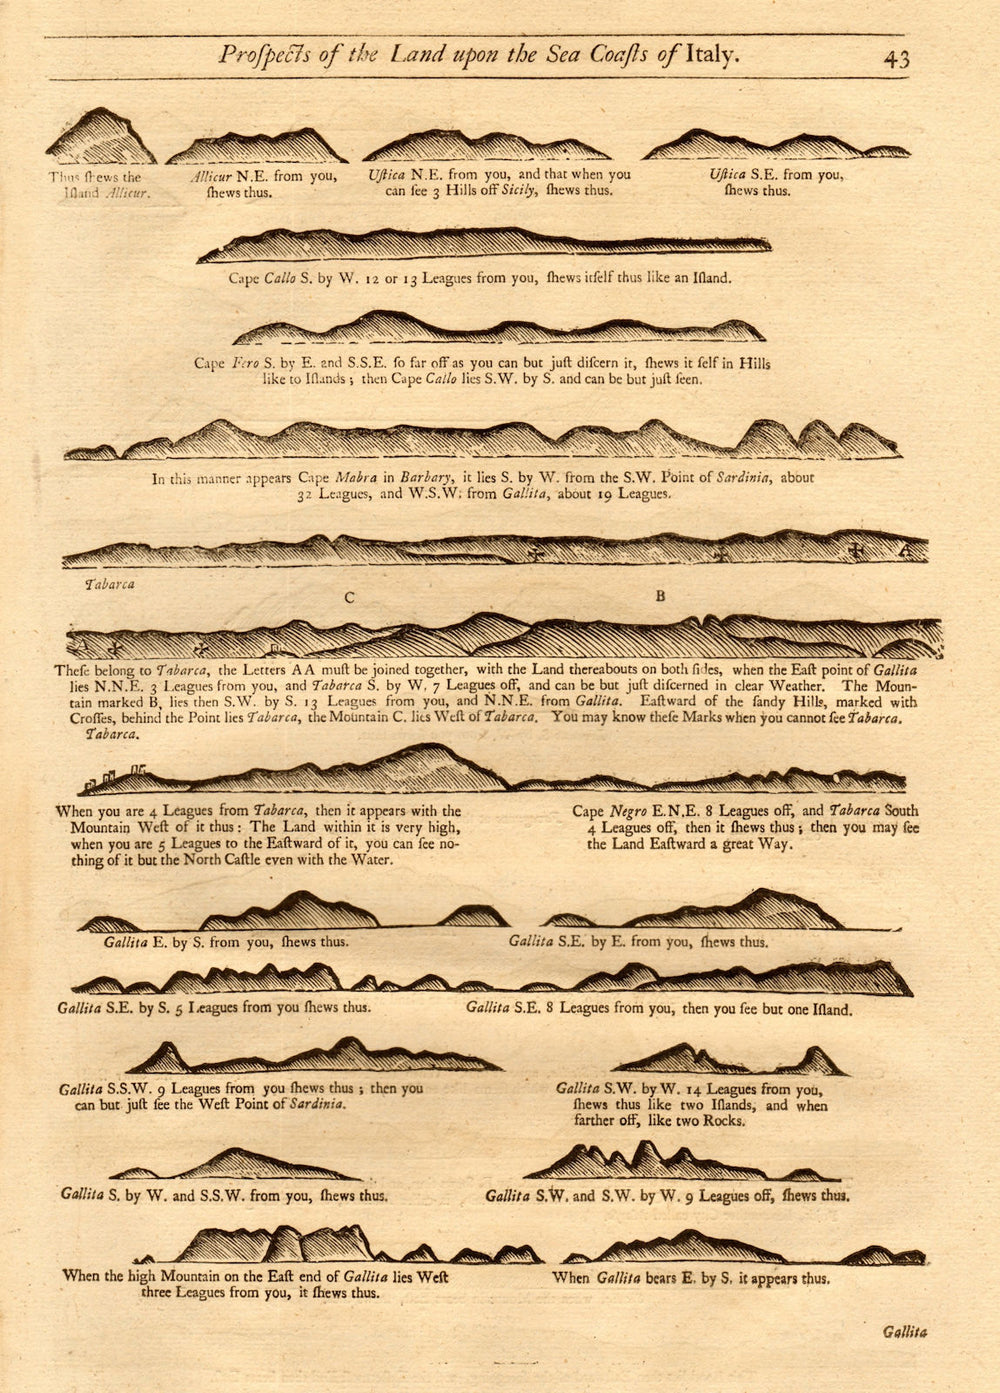 Proſpects of the Land upon the Sea Coaſts of Italy.
43
Thus ſhews the
Iſland Allicur.
Allicur N.E. from you,
ſhews thus.
Uſtica N.E. from you, and that when you
can ſee 3 Hills off Sicily, ſhews thus.
Uſtica S.E. from you,
ſhews thus.
Cape Callo S. by W. 12 or 13 Leagues from you, ſhews itſelf thus like an Iſland.
Cape Fero S. by E. and S.S.E. ſo far off as you can but juſt diſcern it, ſhews it ſelf in Hills
like to Iſlands; then Cape Callo lies S.W. by S. and can be but juſt ſeen.
In this manner appears Cape Mabra in Barbary, it lies S. by W. from the S.W. Point of Sardinia, about
32 Leagues, and W.S.W. from Gallita, about 19 Leagues.
A
Tabarca
C B
A
Theſe belong to Tabarca, the Letters AA muſt be joined together, with the Land thereabouts on both ſides, when the Eaſt point of Gallita
lies N.N.E. 3 Leagues from you, and Tabarca S. by W. 7 Leagues off, and can be but juſt diſcerned in clear Weather. The Moun-
tain marked B, lies then S.W. by S. 13 Leagues from you, and N.N.E. from Gallita. Eaſtward of the ſandy Hills, marked with
Croſſes, behind the Point lies Tabarca, the Mountain C. lies Weſt of Tabarca. You may know theſe Marks when you cannot ſee Tabarca.
Tabarca.
When you are 4 Leagues from Tabarca, then it appears with the
Mountain Weſt of it thus: The Land within it is very high,
when you are 5 Leagues to the Eaſtward of it, you can ſee no-
thing of it but the North Caſtle even with the Water.
Cape Negro E.N.E. 8 Leagues off, and Tabarca South
4 Leagues off, then it ſhews thus; then you may ſee
the Land Eaſtward a great Way.
Gallita E. by S. from you, ſhews thus.
Gallita S.E. by E. from you, ſhews thus.
Gallita S.E. by S. 5 Leagues from you ſhews thus.
Gallita S.E. 8 Leagues from you, then you ſee but one Iſland.
Gallita S.S.W. 9 Leagues from you ſhews thus; then you
can but juſt ſee the Weſt Point of Sardinia.
Gallita S.W. by W. 14 Leagues from you,
ſhews thus like two Iſlands, and when
farther off, like two Rocks.
Gallita S. by W. and S.S.W. from you, ſhews thus.
Gallita S.W. and S.W. by W. 9 Leagues off, ſhews thus.
When the high Mountain on the Eaſt end of Gallita lies Weſt
three Leagues from you, it ſhews thus.
When Gallita bears E. by S. it appears thus.
Gallita